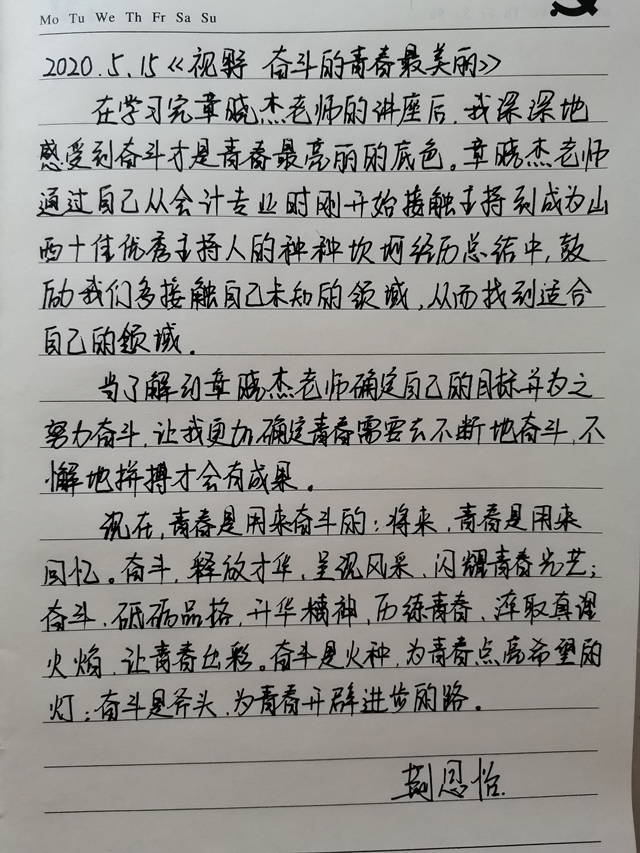 Mo Tu We Th Fr Sa Su
2020.5.15《视野 奋斗的青春最美丽》
在学习完章晓杰老师的讲座后,我深深地
感受到奋斗才是青春最亮丽的底色。章晓杰老师
通过自己从会计专业时刚开始接触主持到成为山
西十佳优秀主持人的种种坎坷经历总结中,鼓
励我们多接触自己未知的领域,从而找到适合
自己的领域.
当了解到章晓杰老师确定自己的目标并为之
努力奋斗,让我更加确定青春需要去不断地奋斗,不
懈地拼搏才会有成果。
现在,青春是用来奋斗的;将来,青春是用来
回忆。奋斗,释放才华,呈现风采,闪耀青春光芒;
奋斗,砥砺品格,升华精神,历练青春,淬取真理
火焰,让青春出彩。奋斗是火种,为青春点亮希望的
灯;奋斗是斧头,为青春开辟进步的路。
思怡